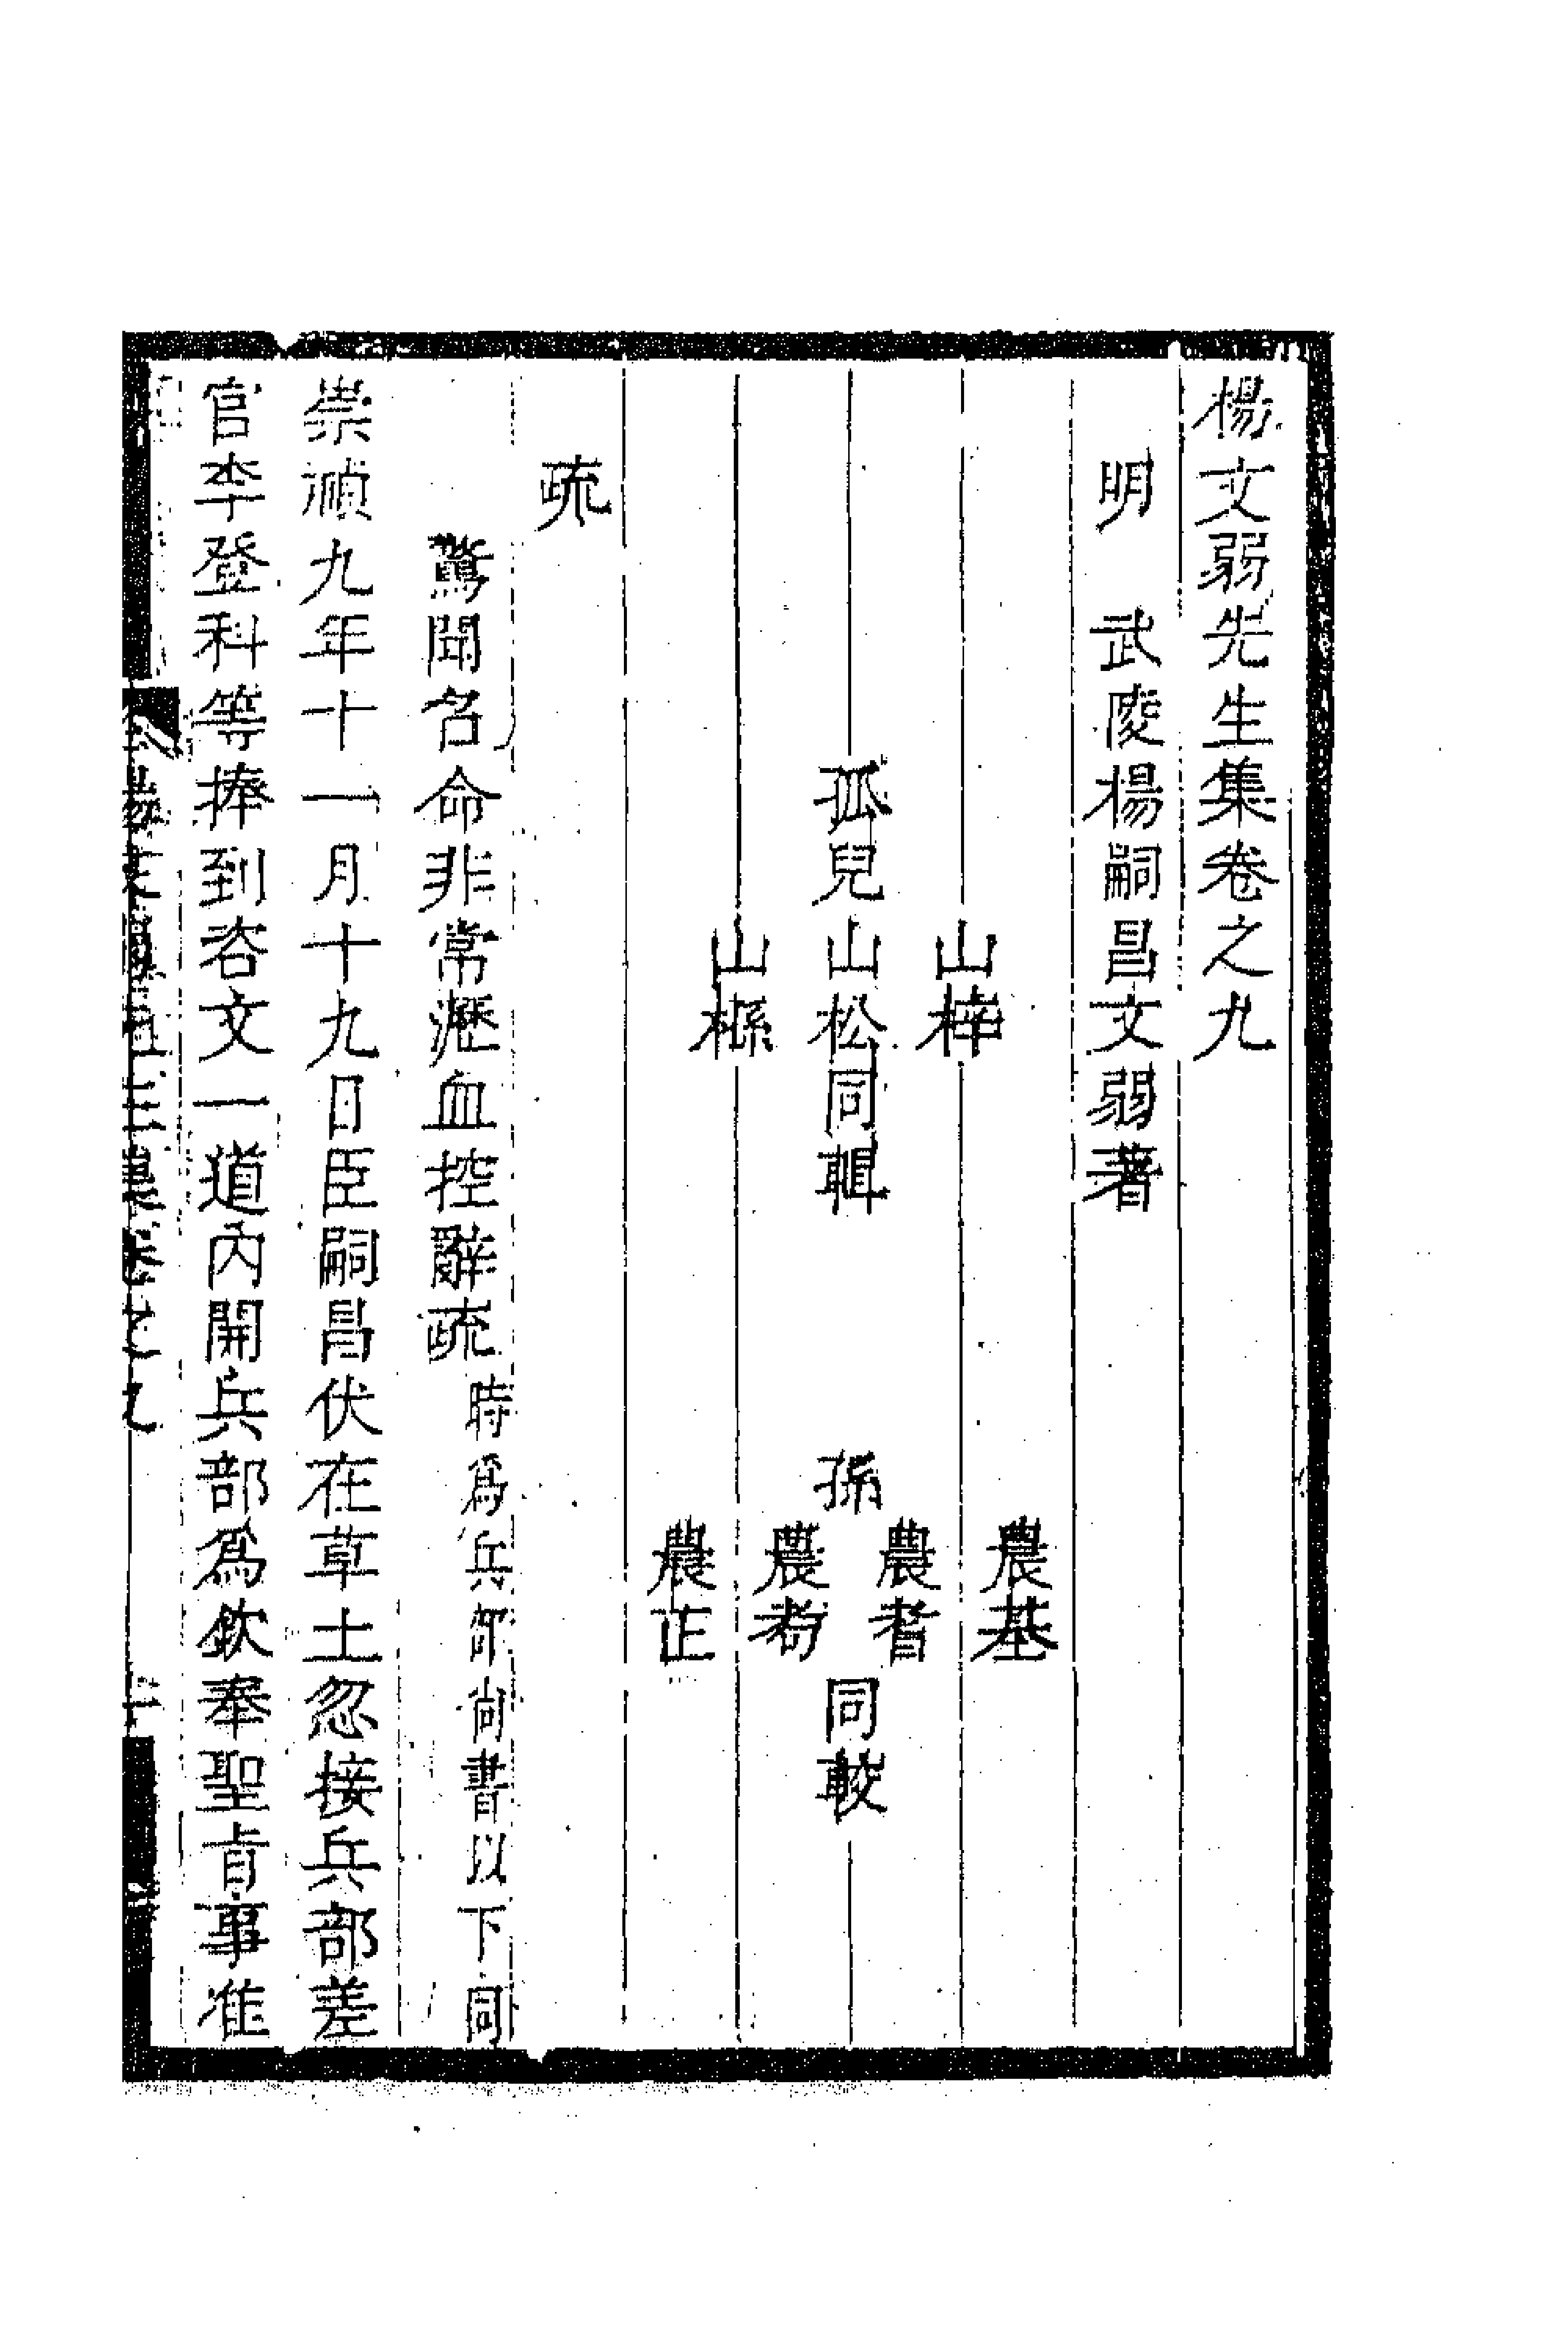 楊文弱先生集卷之九
明　武陵楊嗣昌文弱著
山梓　農基
孤兒山松同輯　孫　農耆　同較
山檖　農考
農正
疏
驚聞名命非常瀝血控辭疏時爲兵部尚書以下同
崇禎九年十一月十九日臣嗣昌伏在草土忽接兵部差
官李登科等捧到咨文一道內開兵部爲欽奉聖旨事准